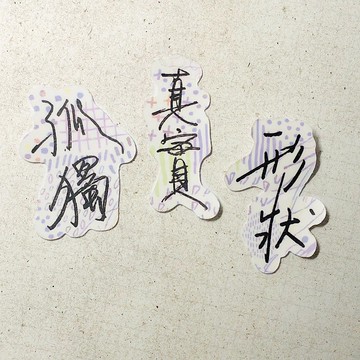 孤獨
真實
形狀